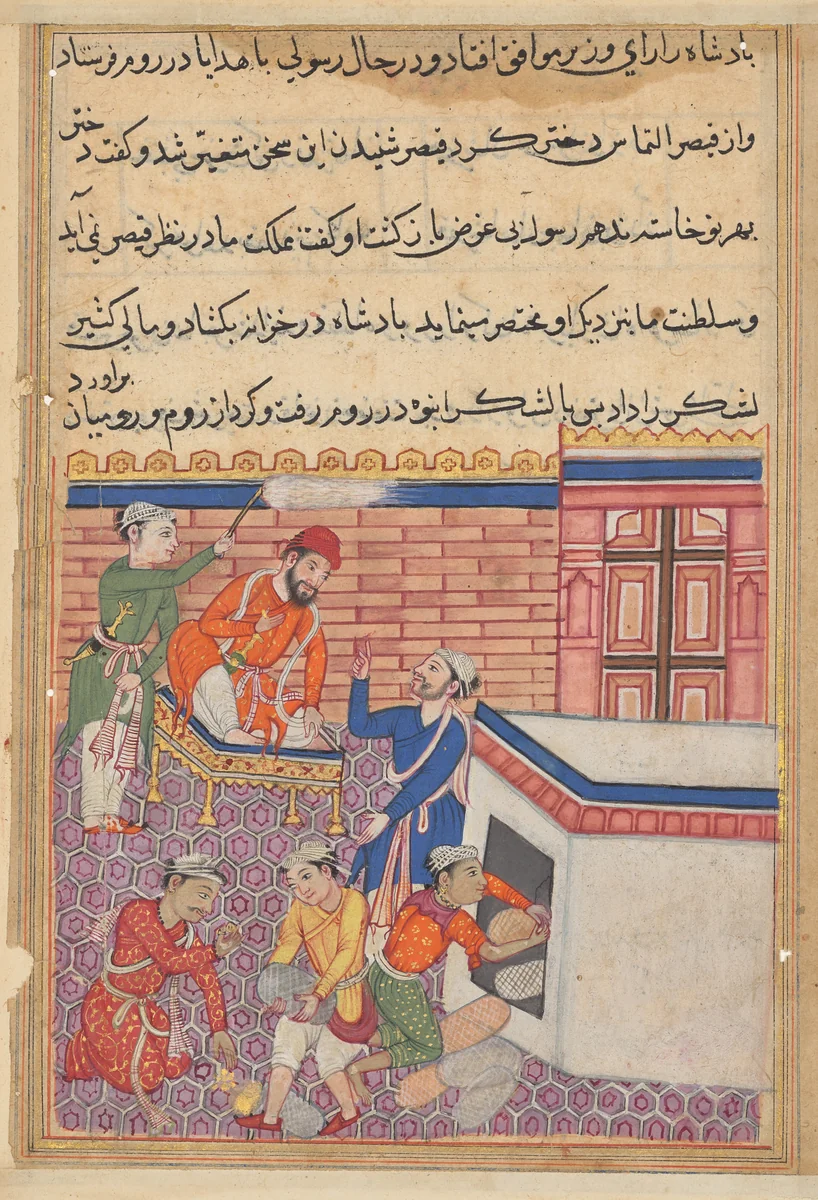 بادشاه را رای وزیر موافق افتاد و در حال رسولی با هدایا در روم فرستاد
و از قیصر التماس دختر کرد قیصر شنیدن این سخن متغیّر شد و کفت دختر
بهر نوخاسته ندهم رسول بی غرض باز کشت او کفت مملکت ما در نظر قیصر نمی آید
و سلطنت ما بنزدیک او مختصر مینماید بادشاه در خزانه بکشاد و مالی کثیر
لشکر را داد پس با لشکر انبوه در روم رفت و کرد از روم و رومیان براورد